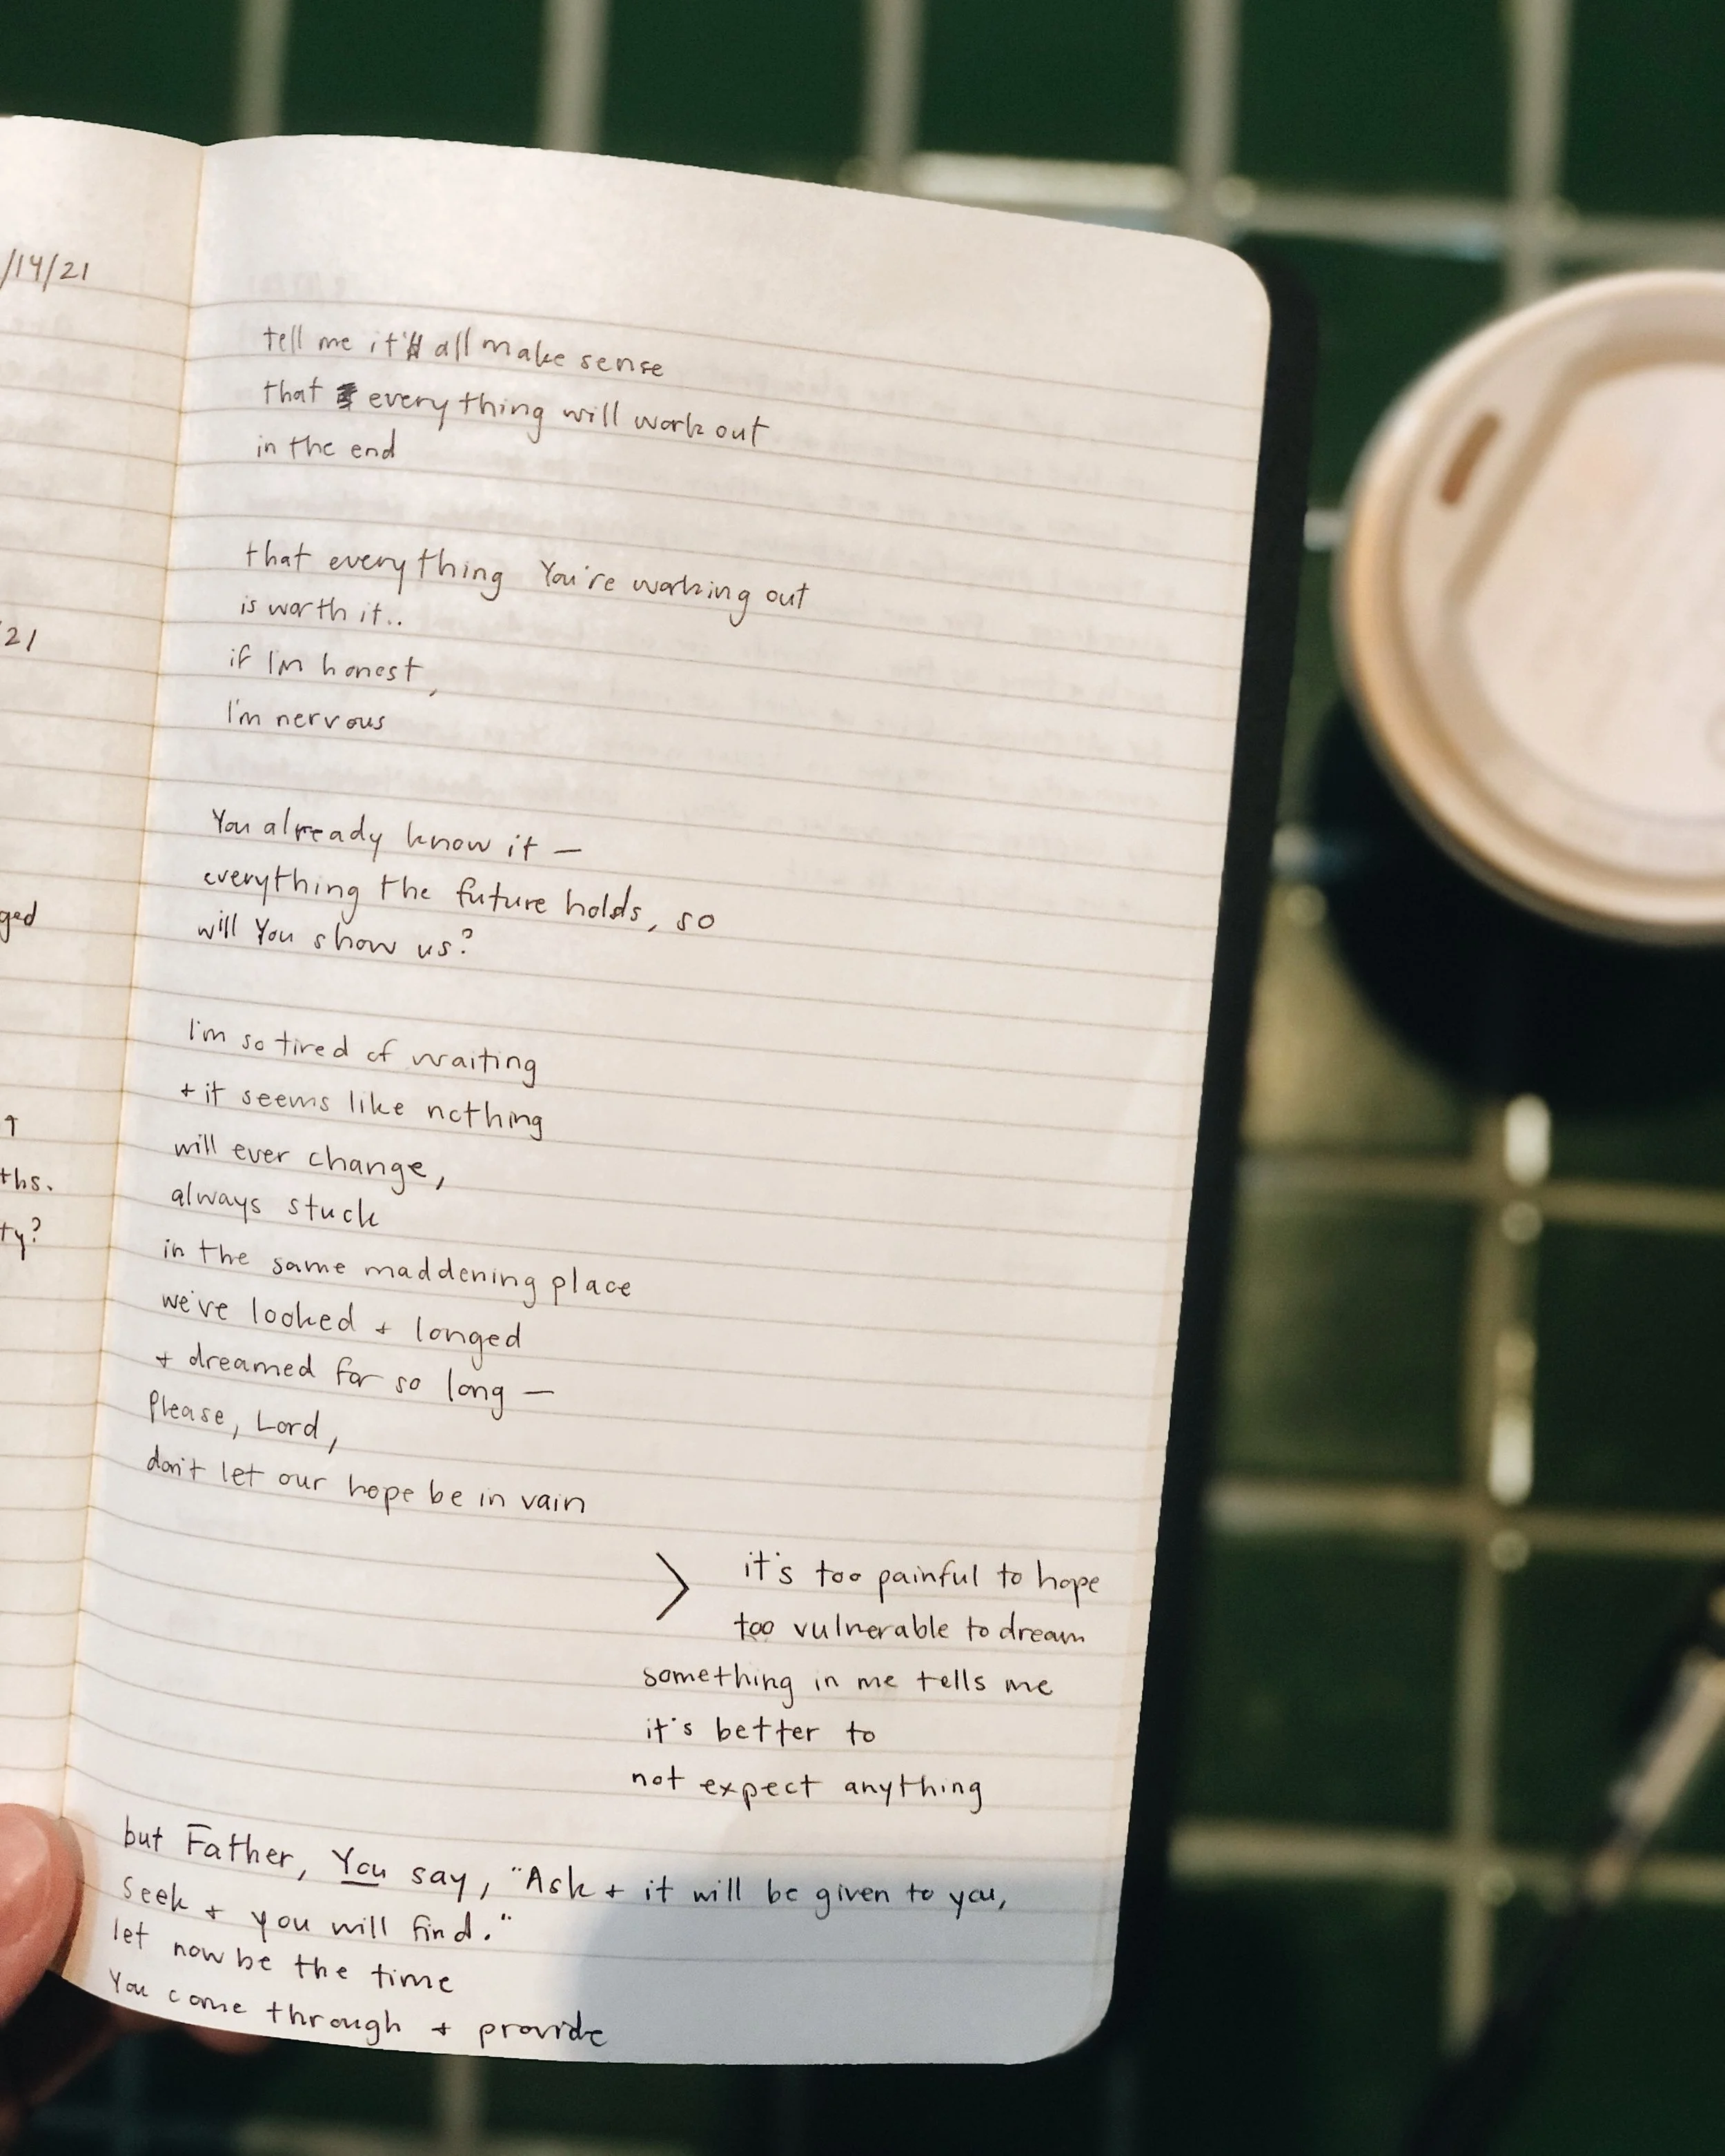 /14/21
21
ged
ths.
ty?
tell me it'll all make sense
that everything will work out
in the end
that everything You're working out
is worth it..
if I'm honest,
I'm nervous
You already know it —
everything the future holds, so
will You show us?
I'm so tired of waiting
+ it seems like nothing
will ever change,
always stuck
in the same maddening place
we've looked + longed
+ dreamed for so long —
Please, Lord,
don't let our hope be in vain
> it's too painful to hope
too vulnerable to dream
something in me tells me
it's better to
not expect anything
but Father, You say, "Ask + it will be given to you,
Seek + you will find."
let now be the time
You come through + provide